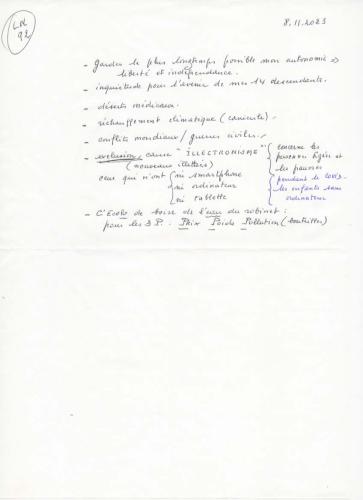 LRL
92
8.11.2023
- garder le plus longtemps possible mon autonomie ⇒
liberté et indépendance.
- inquiétude pour l'avenir de mes 14 descendants.
- déserts médicaux.
- réchauffement climatique (canicule).
- conflits mondiaux / guerres civiles.
- exclusion cause "ILLECTRONISME"
(nouveaux illettrés)
ceux qui n'ont { ni smartphone
ni ordinateur
ni tablette
{ concerne les
personnes âgées et
les pauvres
pendant le covid.
les enfants sans
ordinateur
- C'Ecolo de boire de l'eau du robinet :
pour les 3 P. : Prix Poids Pollution (bouteilles)